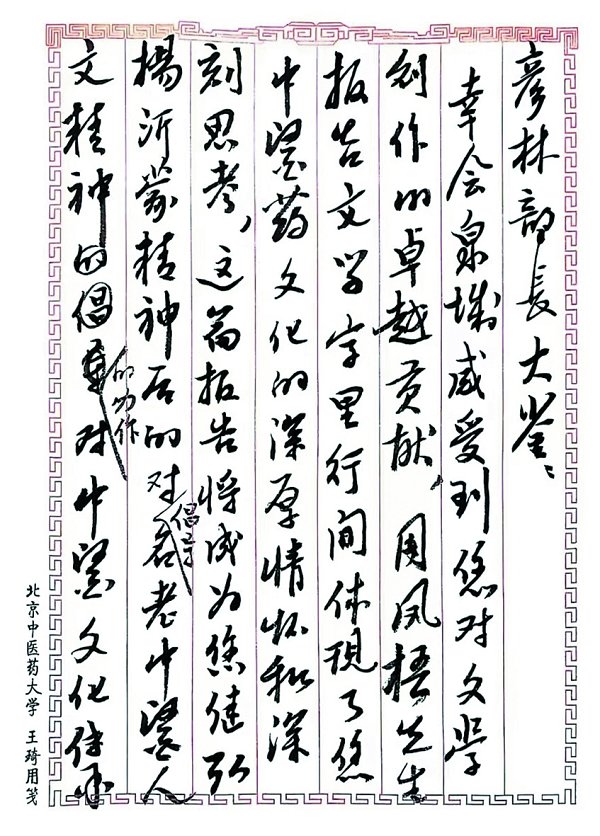 彦林部長大鉴：
幸会泉城感受到您对文學
创作的卓越贡献，周凤梧先生
报告文学字里行间体现了您
中醫药文化的深厚情怀和深
刻思考，这篇报告将成为您继弘
揚沂蒙精神后的对倡导名老中醫人
文精神的倡导的力作对中醫文化传承
北京中医药大学 王琦用笺